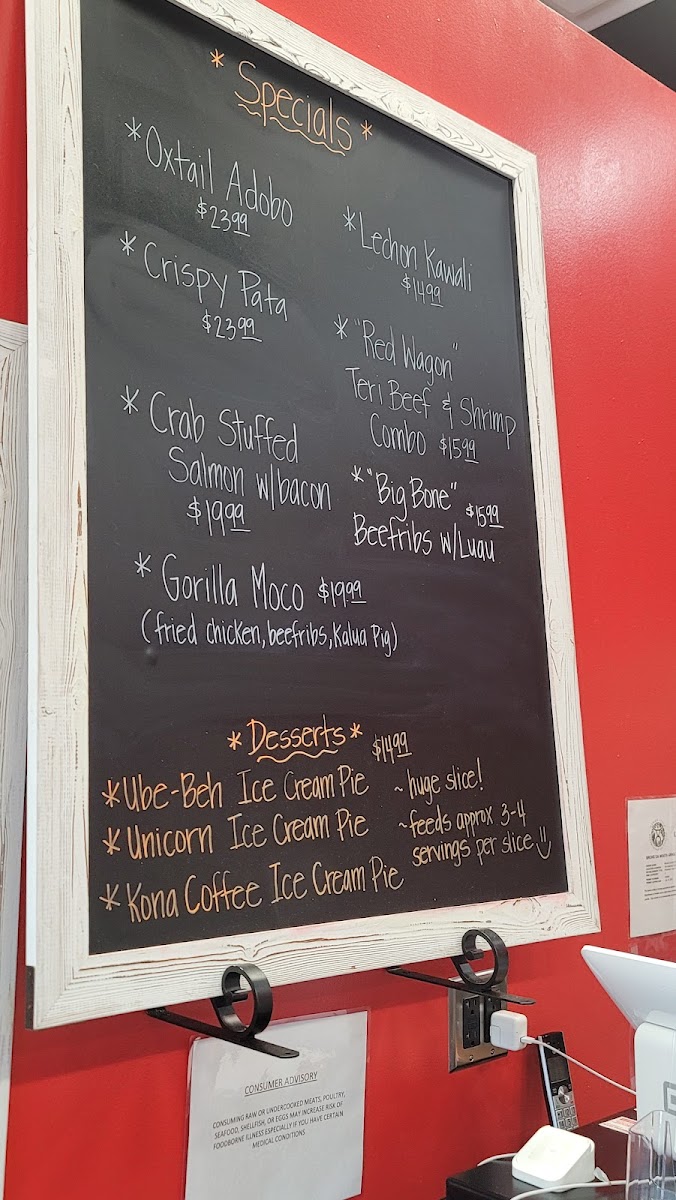 * Specials *
* Oxtail Adobo
$23.99
* Crispy Pata
$23.99
* Crab Stuffed
Salmon w/bacon
$19.99
* Lechon Kawali
$14.99
* "Red Wagon"
Teri Beef & Shrimp
Combo $15.99
* "Big Bone" $15.99
Beefribs w/Luau
* Gorilla Moco $19.99
(fried chicken, beefribs, Kalua Pig)
* Desserts * $14.99
* Ube-Beh Ice Cream Pie
* Unicorn Ice Cream Pie
* Kona Coffee Ice Cream Pie
~ huge slice!
~ feeds approx 3-4
servings per slice
CONSUMER ADVISORY
CONSUMING RAW OR UNDERCOOKED MEATS, POULTRY,
SEAFOOD, SHELLFISH, OR EGGS MAY INCREASE RISK OF
FOODBORNE ILLNESS ESPECIALLY IF YOU HAVE CERTAIN
MEDICAL CONDITIONS